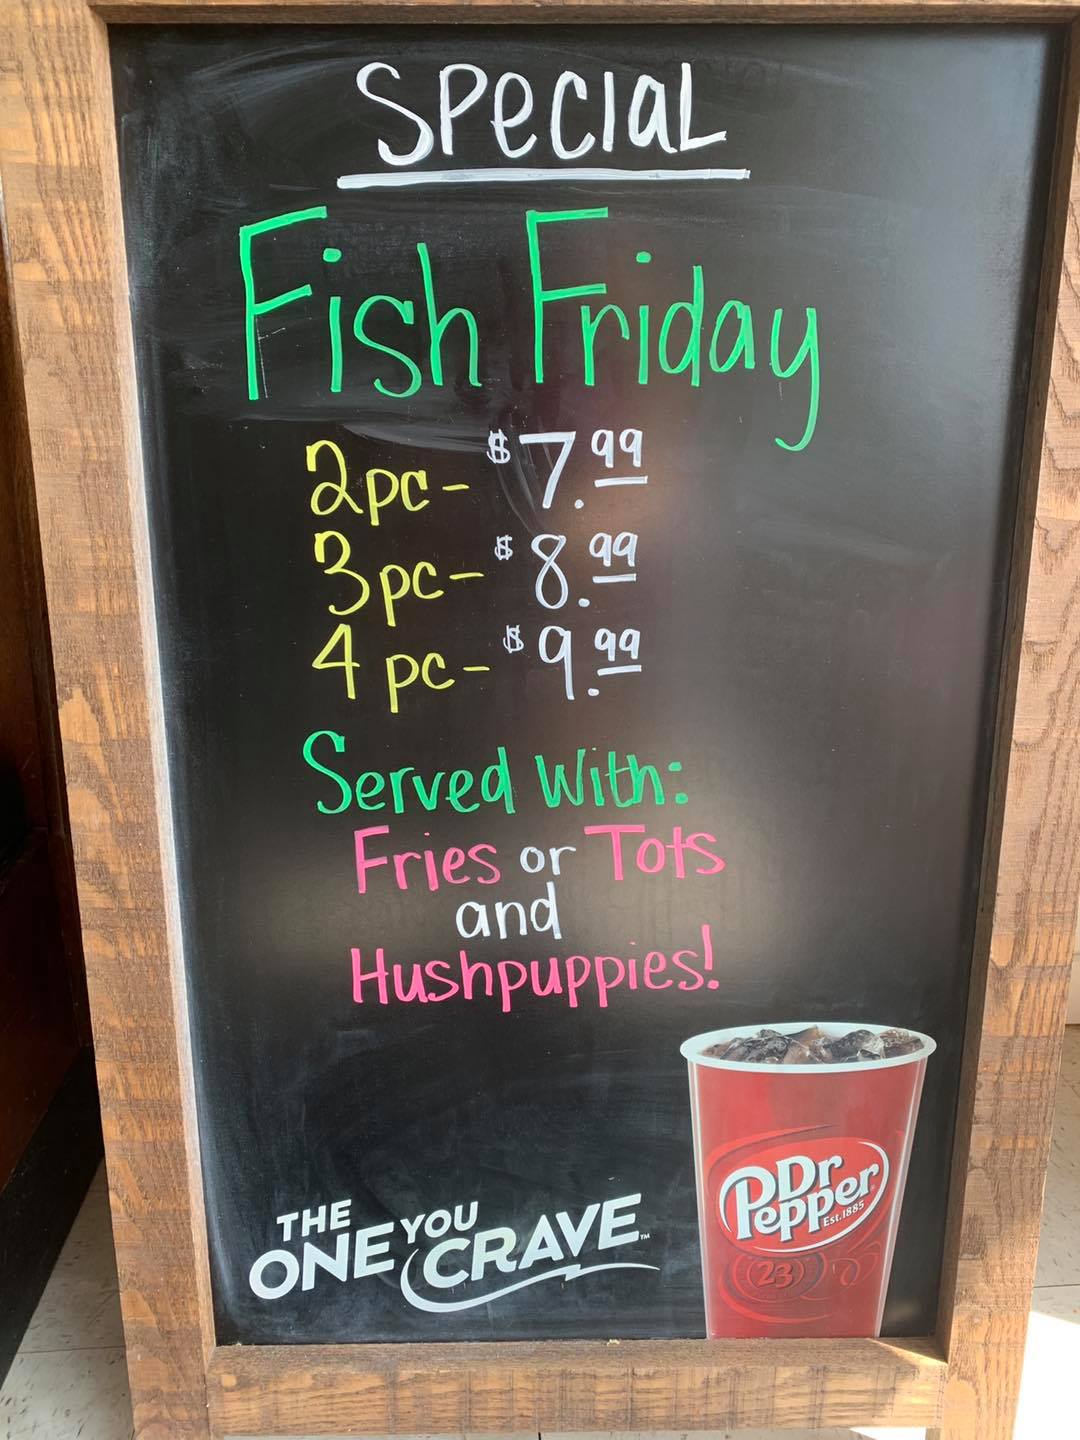 SPecIaL
Fish Friday
2pc- $7.99
3pc- $8.99
4pc- $9.99
Served With:
Fries or Tots
and
Hushpuppies!
THE
ONE YOU
CRAVE™
Dr
Pepper®
Est.1885
23